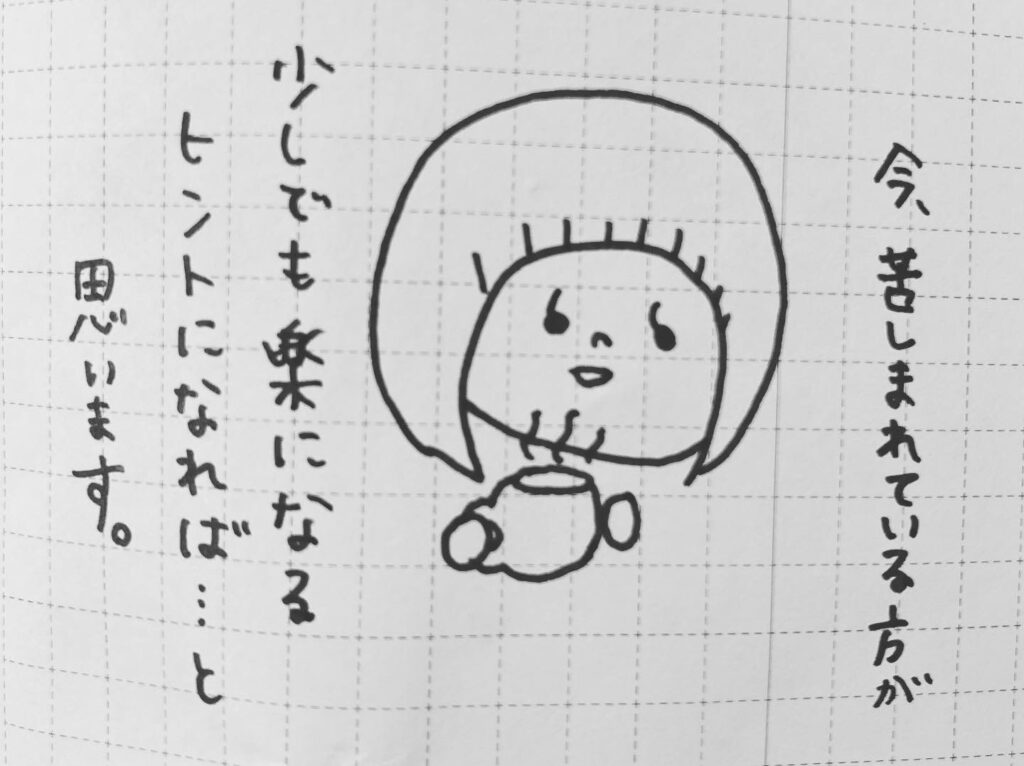 今、苦しまれている方が
少しでも楽になる
ヒントになれば…と
思います。